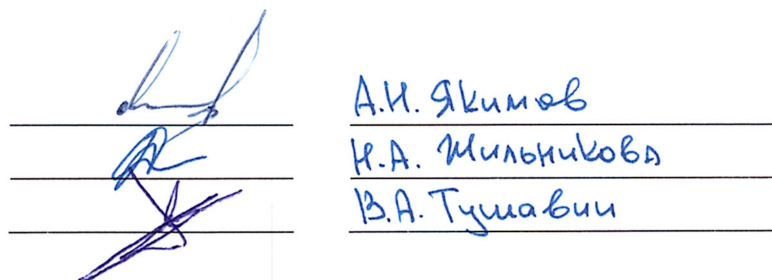 А.Н. Якимов
Н.А. Жильникова
В.А. Тушавин